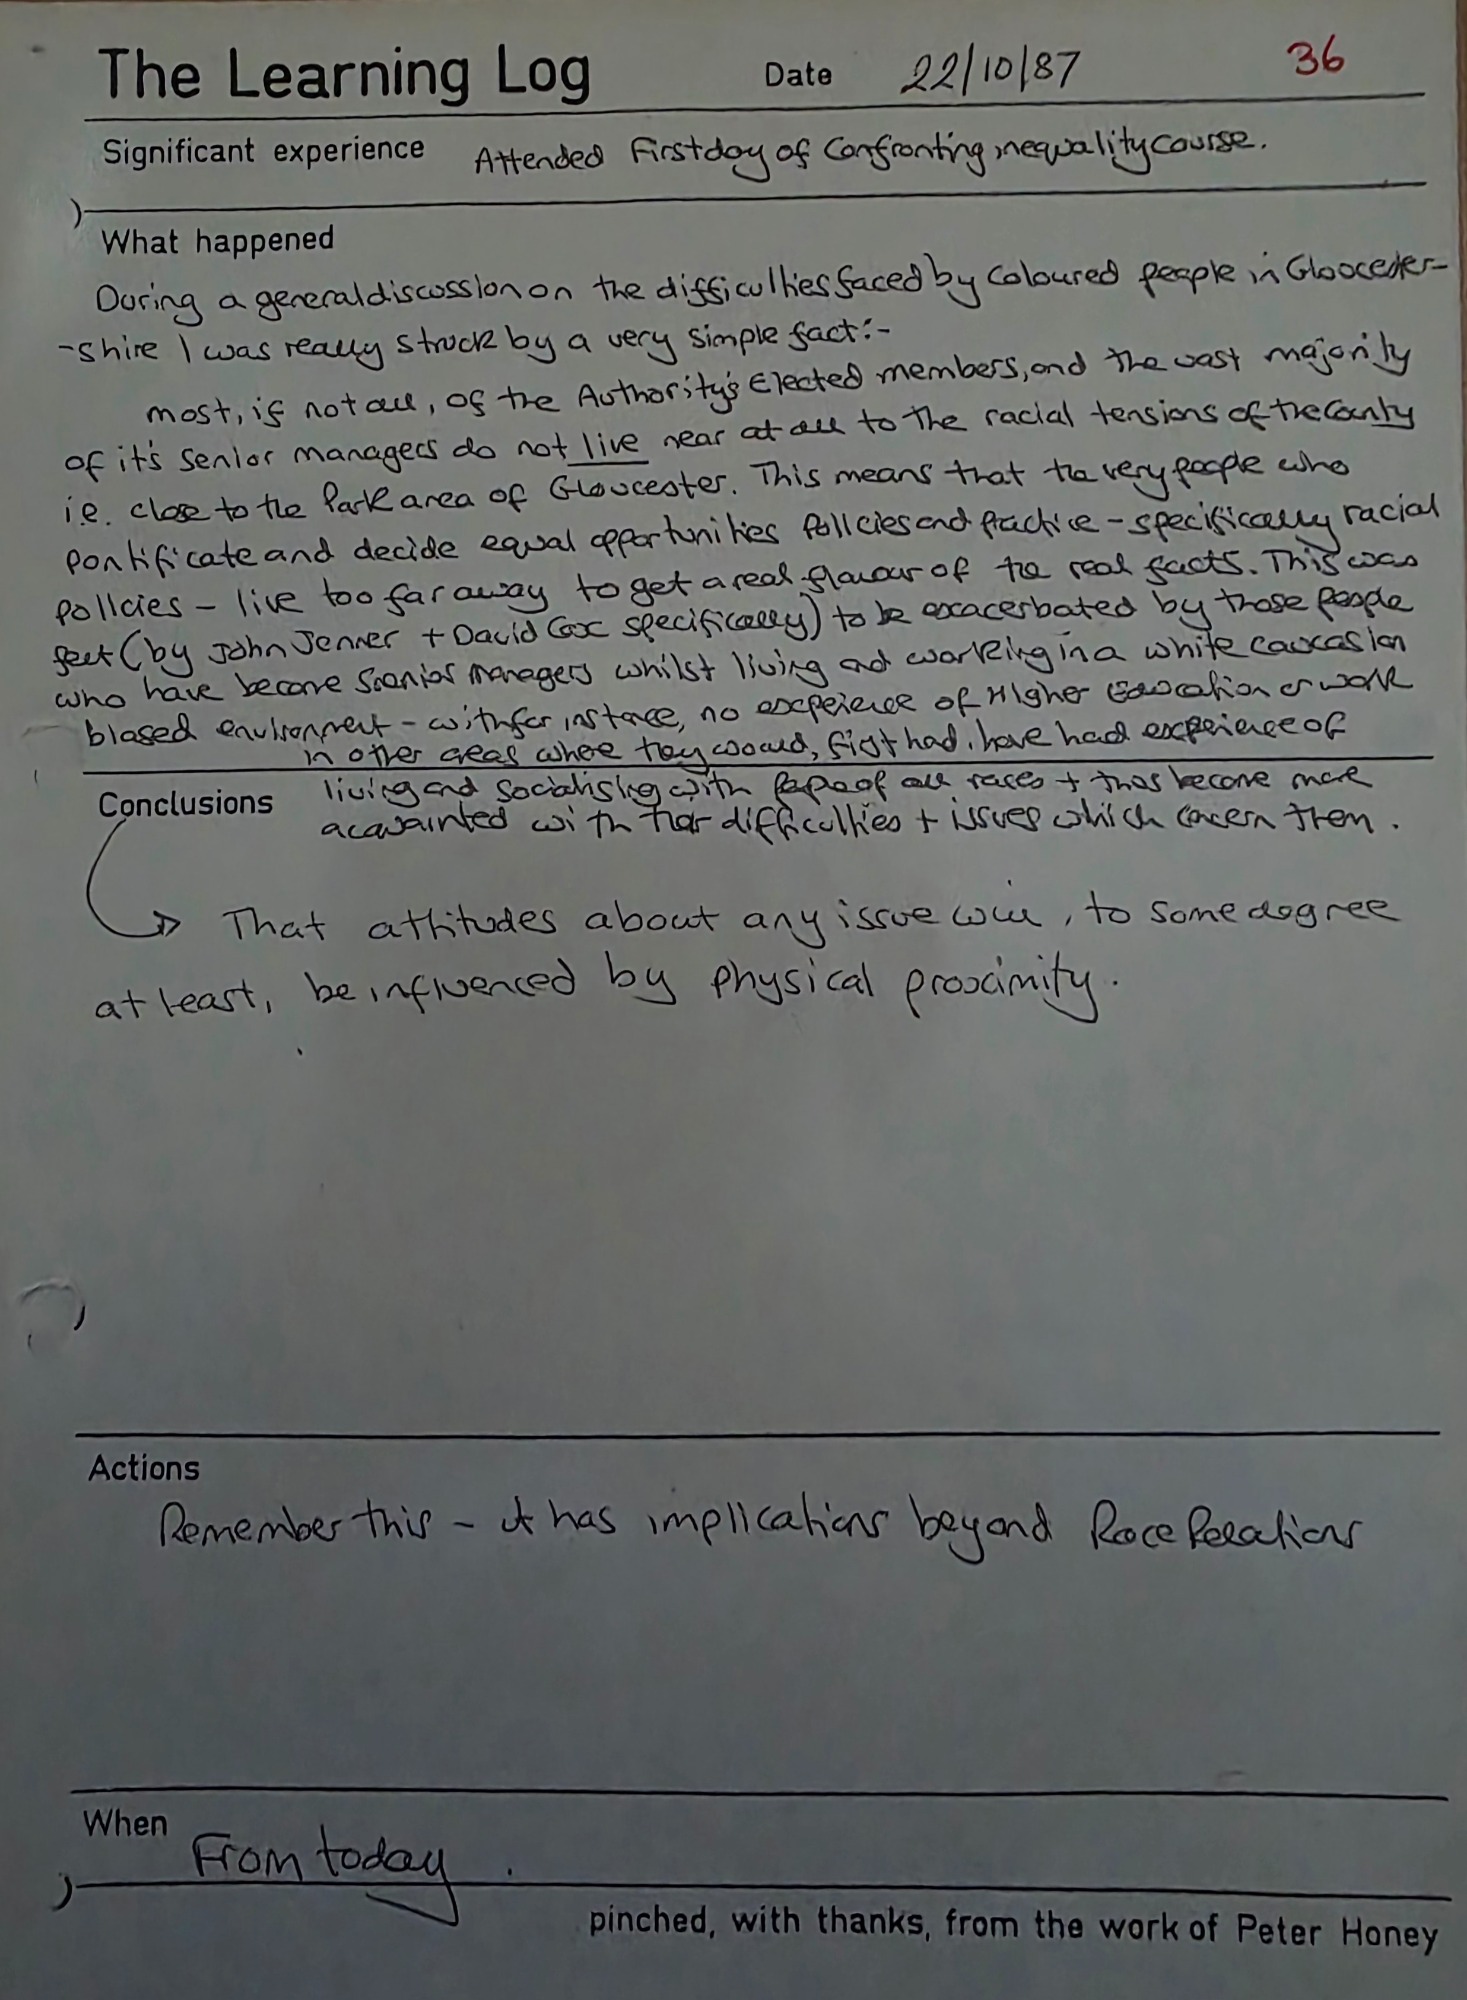 The Learning Log Date 22/10/87 36
Significant experience Attended First day of Confronting inequality course.
What happened
During a general discussion on the difficulties faced by Coloured people in Gloucester-
-shire I was really struck by a very simple fact:-
most, if not all, of the Authority's Elected members, and the vast majority
of it's senior managers do not live near at all to the racial tensions of the County
i.e. close to the Park area of Gloucester. This means that the very people who
pontificate and decide equal opportunities policies and practice - specifically racial
policies - live too far away to get a real flavour of the real facts. This was
felt (by John Jenner + David Cox specifically) to be exacerbated by those people
who have become Senior Managers whilst living and working in a white caucasian
biased environment - with for instance, no experience of Higher Education or work
in other areas where they would, first hand, have had experience of
living and socialising with people of all races + thus become more
Conclusions
acquainted with their difficulties + issues which concern them.
That attitudes about any issue will, to some degree
at least, be influenced by physical proximity.
Actions
Remember this - it has implications beyond Race Relations
When
From today.
pinched, with thanks, from the work of Peter Honey